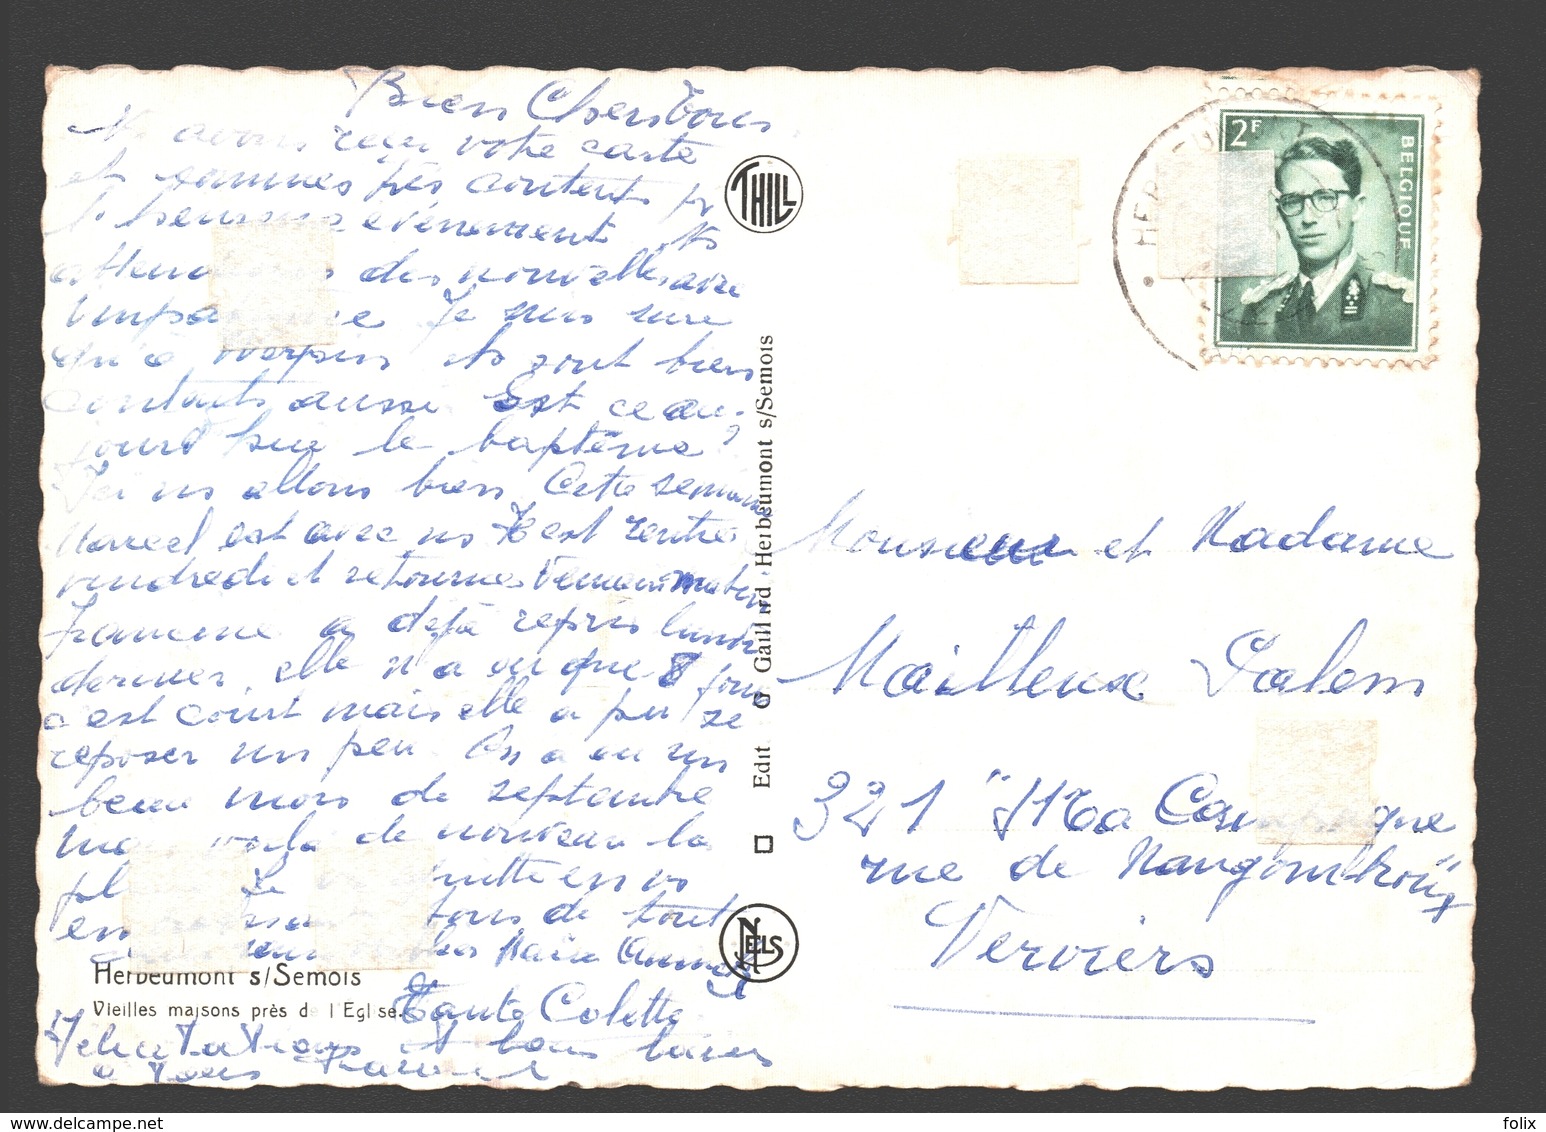 Bien Chers tous
Ns avons reçu votre carte
et sommes très contents pr
l'heureux événement Ns
attendons des nouvelles avec
impatience Je suis sure
qu'à ils sont bien
contents aussi. Est ce au-
jourd'hui le baptême?
Ici ns allons bien. Cette semaine
Marcel est avec ns Il est rentré
vendredi et retourne demain matin
Francine a déjà repris lundi
dernier, elle n'a eu que 8 jours
c'est court mais elle a pu se
reposer un peu. On a eu un
beau mois de septembre
mais voilà de nouveau la
pluie Je vs quitte en vs
embrassant tous de tout
Tante Colette
Félicitations et bons baisers
à tous
Herbeumont s/Semois
Vieilles maisons près de l'Eglise.
THILL
Edit G Gaillard Herbeumont s/Semois
NELS
2F
BELGIQUE
HERBEUMONT
Monsieur et Madame
Mailleux Salem
321 Campagne
rue de
Verviers
folix